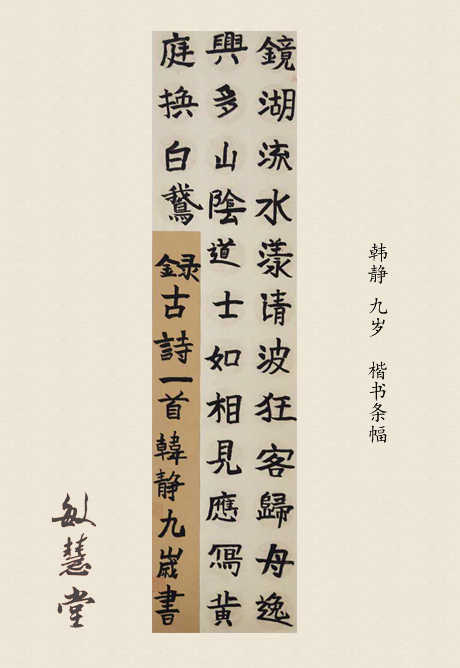 韩静 九岁 楷书条幅
鏡湖流水漾清波狂客歸舟逸
興多山陰道士如相見應冩黄
庭換白鵝
録古詩一首韓静九歲書
敏慧堂